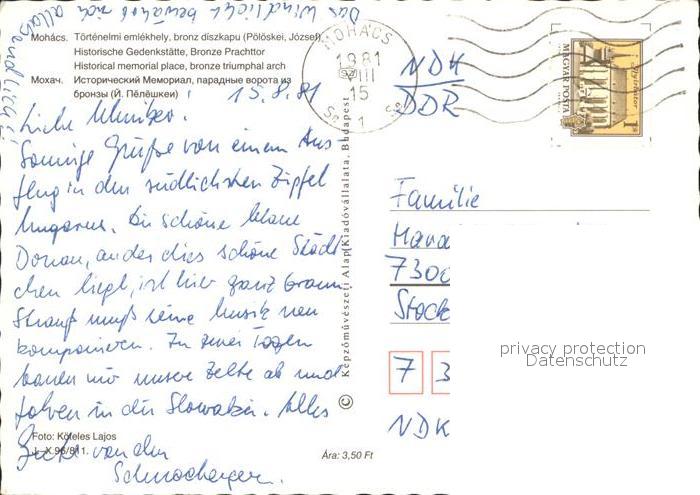 Das Windlicht bewährt sich
allabendlich!
Mohács. Történelmi emlékhely, bronz díszkapu (Pölöskei, József)
Historische Gedenkstätte, Bronze Prachttor
Historical memorial place, bronze triumphal arch
Мохач. Исторический Мемориал, парадные ворота из
бронзы (Й. Пёлёшкеи)
15.8.81
Liebe
Sonnige Grüße von einem Aus
flug in den südlichsten Zipfel
Ungarns. Die schöne blaue
Donau, an der dies schöne Städt
chen liegt, ist hier ganz braun
Strauß muß seine Musik neu
komponieren. In zwei Tagen
bauen wir unsere Zelte ab und
fahren in die Slowakei. Alles
Gute von den
Foto: Köteles Lajos
Ára: 3,50 Ft
Képzőművészeti Alap Kiadóvállalata, Budapest
©
MOHÁCS
1981
VIII
15
1
MAGYAR POSTA
1 Ft
NDK
DDR
Familie
7300
7 3
NDK
privacy protection
Datenschutz